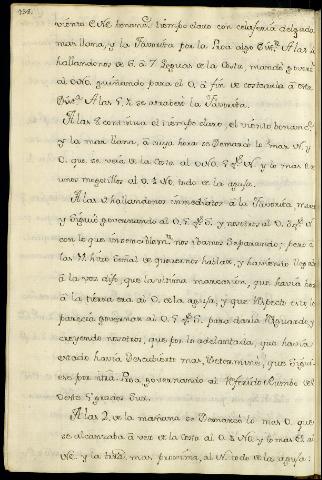 viento ENE bonanc.e tiempo claro con celajeria delgada
mar llana, y la Favorita por la Proa algo
hallandonos de 6 a 7 leguas de la Costa, mandó governar
al ONO. guiñando para el O. a fin de costearla a esta
A las 5 ½ se atraveso la Favorita.
A las 8 continua el tiempo claro, el viento bonanc.e
y la mar llana, a cuya hora se Demarcó lo mas N. y
O. que se veía de la Costa al ONO. 5 N. y lo mas
unos mogotillos al O. 4 NO. todo de la aguja.
A las 9 hallandonos inmediatos a la Favorita mareó
y siguió governando al O. 5 S. y nosotros al O. N.
con lo que insensiblem.te nos ibamos Separando; pero a
las 11 hizo Señal de querernos hablar, y haviendo llegado
a la voz dijo, que la ultima marcacion, que havia hecho
a la tierra era al O. de la aguja, y que Respecto a esto le
parecia governar al O. 5 S. para darla Resguardo, y
creyendo nosotros, que por lo adelantada, que havia
estado havia Descubierto mas, Determinó, que Siguie-
ese por nra Proa, governando al Referido Rumbo del
Oeste 5 grados Sur.
A las 2 de la mañana se Demarcó lo mas O. que
se alcanzaba a ver de la Costa al O. 4 NO. y lo mas E. al
NE. y la tierra mas proxima, al N. todo de la aguja: